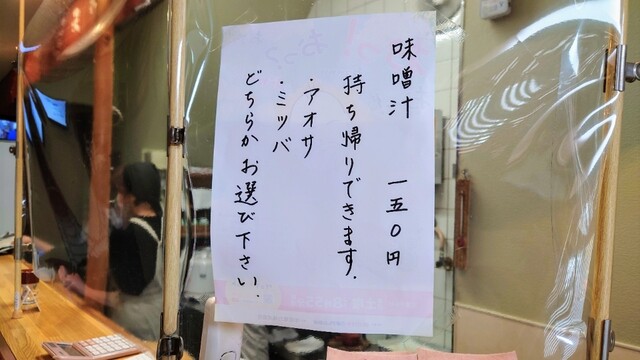 味噌汁 一五〇円
持ち帰りできます.
・アオサ
・ミツバ
どちらかお選び下さい.